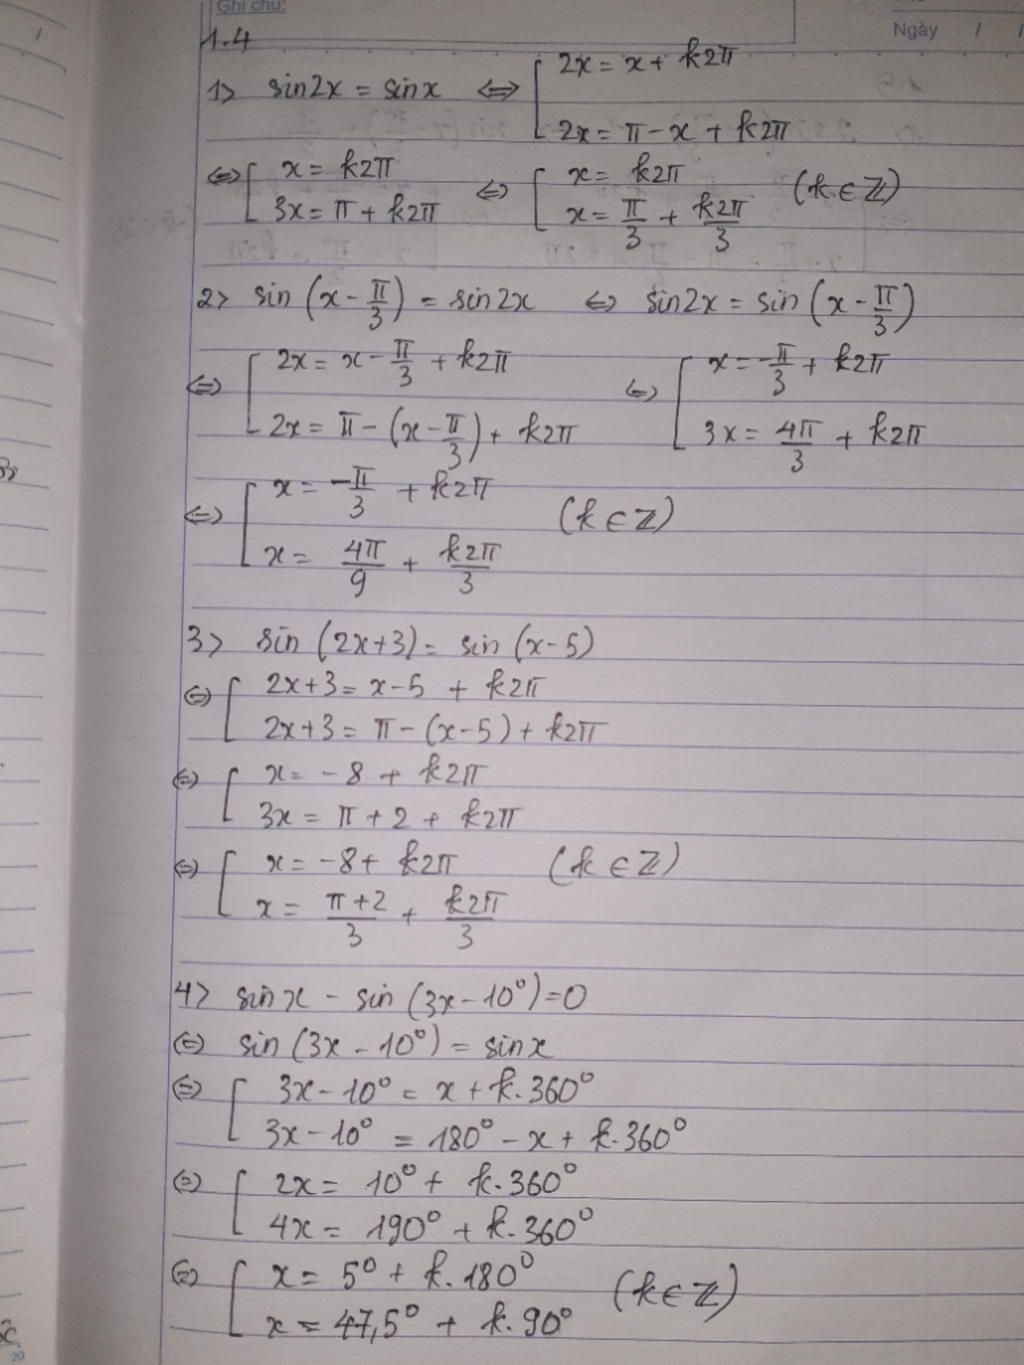 Ghi chú:
Ngày / /
1.4
1> sin2x = sinx ⇔ [ 2x = x + k2π
2x = π - x + k2π
⇔ [ x = k2π ⇔ [ x = k2π (k ∈ Z)
3x = π + k2π x = π/3 + k2π/3
2> sin (x - π/3) = sin2x ⇔ sin2x = sin (x - π/3)
⇔ [ 2x = x - π/3 + k2π ⇔ [ x = -π/3 + k2π
2x = π - (x - π/3) + k2π 3x = 4π/3 + k2π
⇔ [ x = -π/3 + k2π (k ∈ Z)
x = 4π/9 + k2π/3
3> sin (2x+3) = sin (x-5)
⇔ [ 2x+3 = x-5 + k2π
2x+3 = π - (x-5) + k2π
⇔ [ x = -8 + k2π
3x = π + 2 + k2π
⇔ [ x = -8 + k2π (k ∈ Z)
x = π+2/3 + k2π/3
4> sinx - sin (3x - 10°) = 0
⇔ sin (3x - 10°) = sinx
⇔ [ 3x - 10° = x + k.360°
3x - 10° = 180° - x + k.360°
⇔ [ 2x = 10° + k.360°
4x = 190° + k.360°
⇔ [ x = 5° + k.180° (k ∈ Z)
x = 47,5° + k.90°